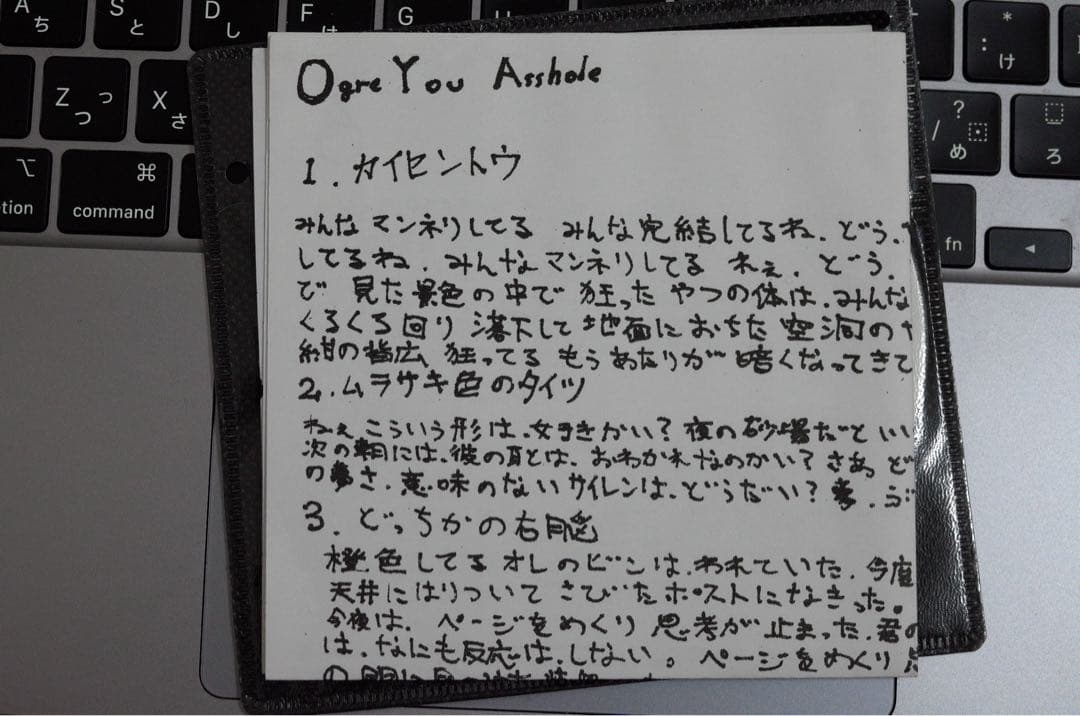 A ち
S と
D し
F は
G
Z っ つ
X さ
* : け
? / ・ め
ろ
⌥
⌘
command
fn
Ogre You Asshole
1. カイセントウ
みんな マンネリしてる みんな完結してるね、どう、
してるね、みんなマンネリしてる ねぇ、どう、
で 見た景色の中で 狂った やつの体は、みんな
くるくる回り 落下して 地面におちた 空洞の
紺の 狂ってる もう あたりが 暗くなってきて
2. ムラサキ色のタイツ
ねぇ こういう形は、好きかい? 夜の砂場だと いい
次の朝には、彼の耳とは、おわかれなのかい? さあ ど
の さ、意味のないサイレンは、どうだい?
3. どっちかの右脳
橙色してるオレのビンは、われていた、今度
天井にはりついて さびたポストになきった。
今夜は、ページをめくり 思考が止まった、君の
は、なにも反応は、しない。ページをめくり